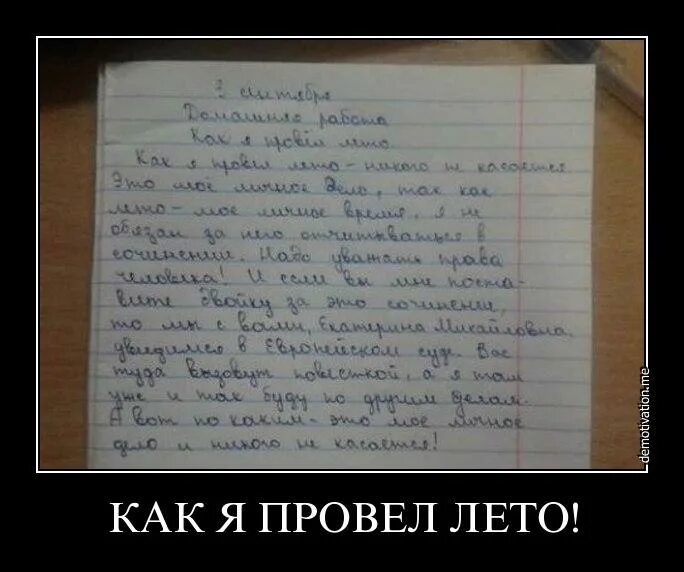 3 сентября
Домашняя работа
Как я провёл лето
Как я провёл лето - никого не касается.
Это моё личное дело, так как
лето - мое личное время, я не
обязан за него отчитываться в
сочинении. Надо уважать права
человека! И если вы мне поста-
вите двойку за это сочинение,
то мы с вами, Екатерина Михайловна,
увидимся в Европейском суде. Вас
туда вызовут повесткой, а я там
уже и так буду по другим делам.
А вот по каким - это мое личное
дело и никого не касается!
demotivation.me
КАК Я ПРОВЕЛ ЛЕТО!